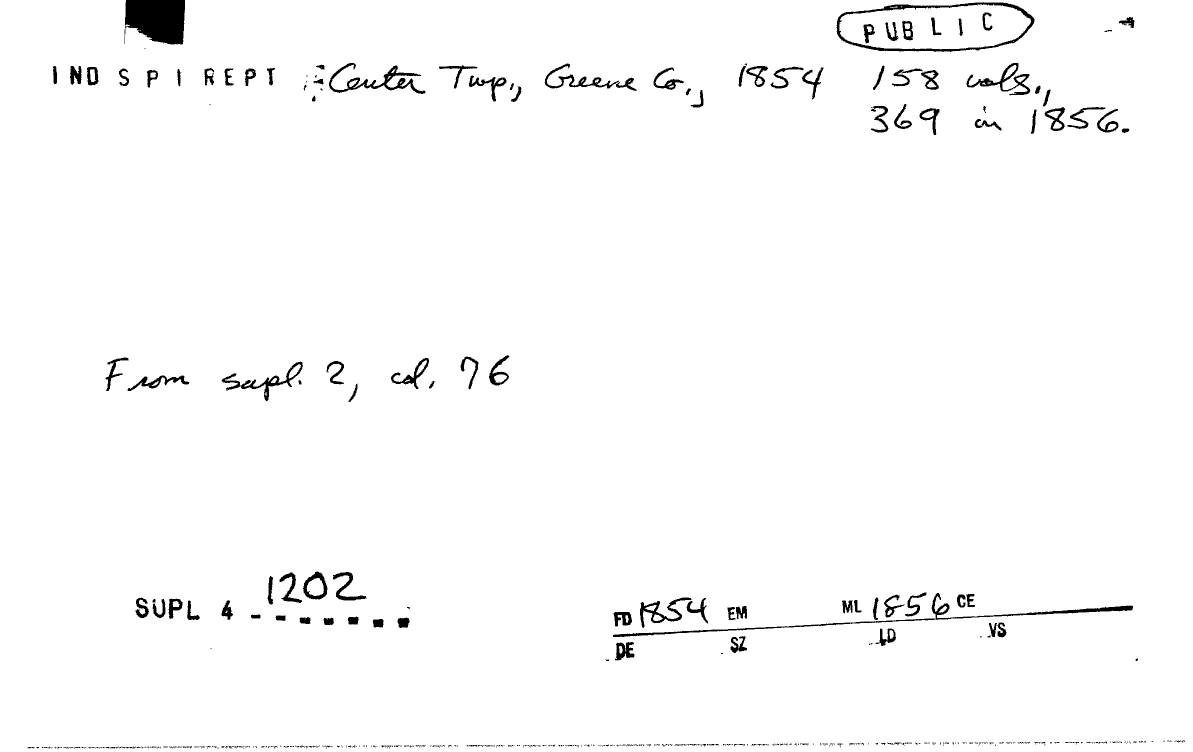 PUBLIC
IND SPI REPT : Center Twp., Greene Co., 1854 158 vols.,
369 in 1856.
From supl. 2, col. 76
SUPL 4 1202
FD 1854 EM ML 1856 CE
DE SZ LD VS